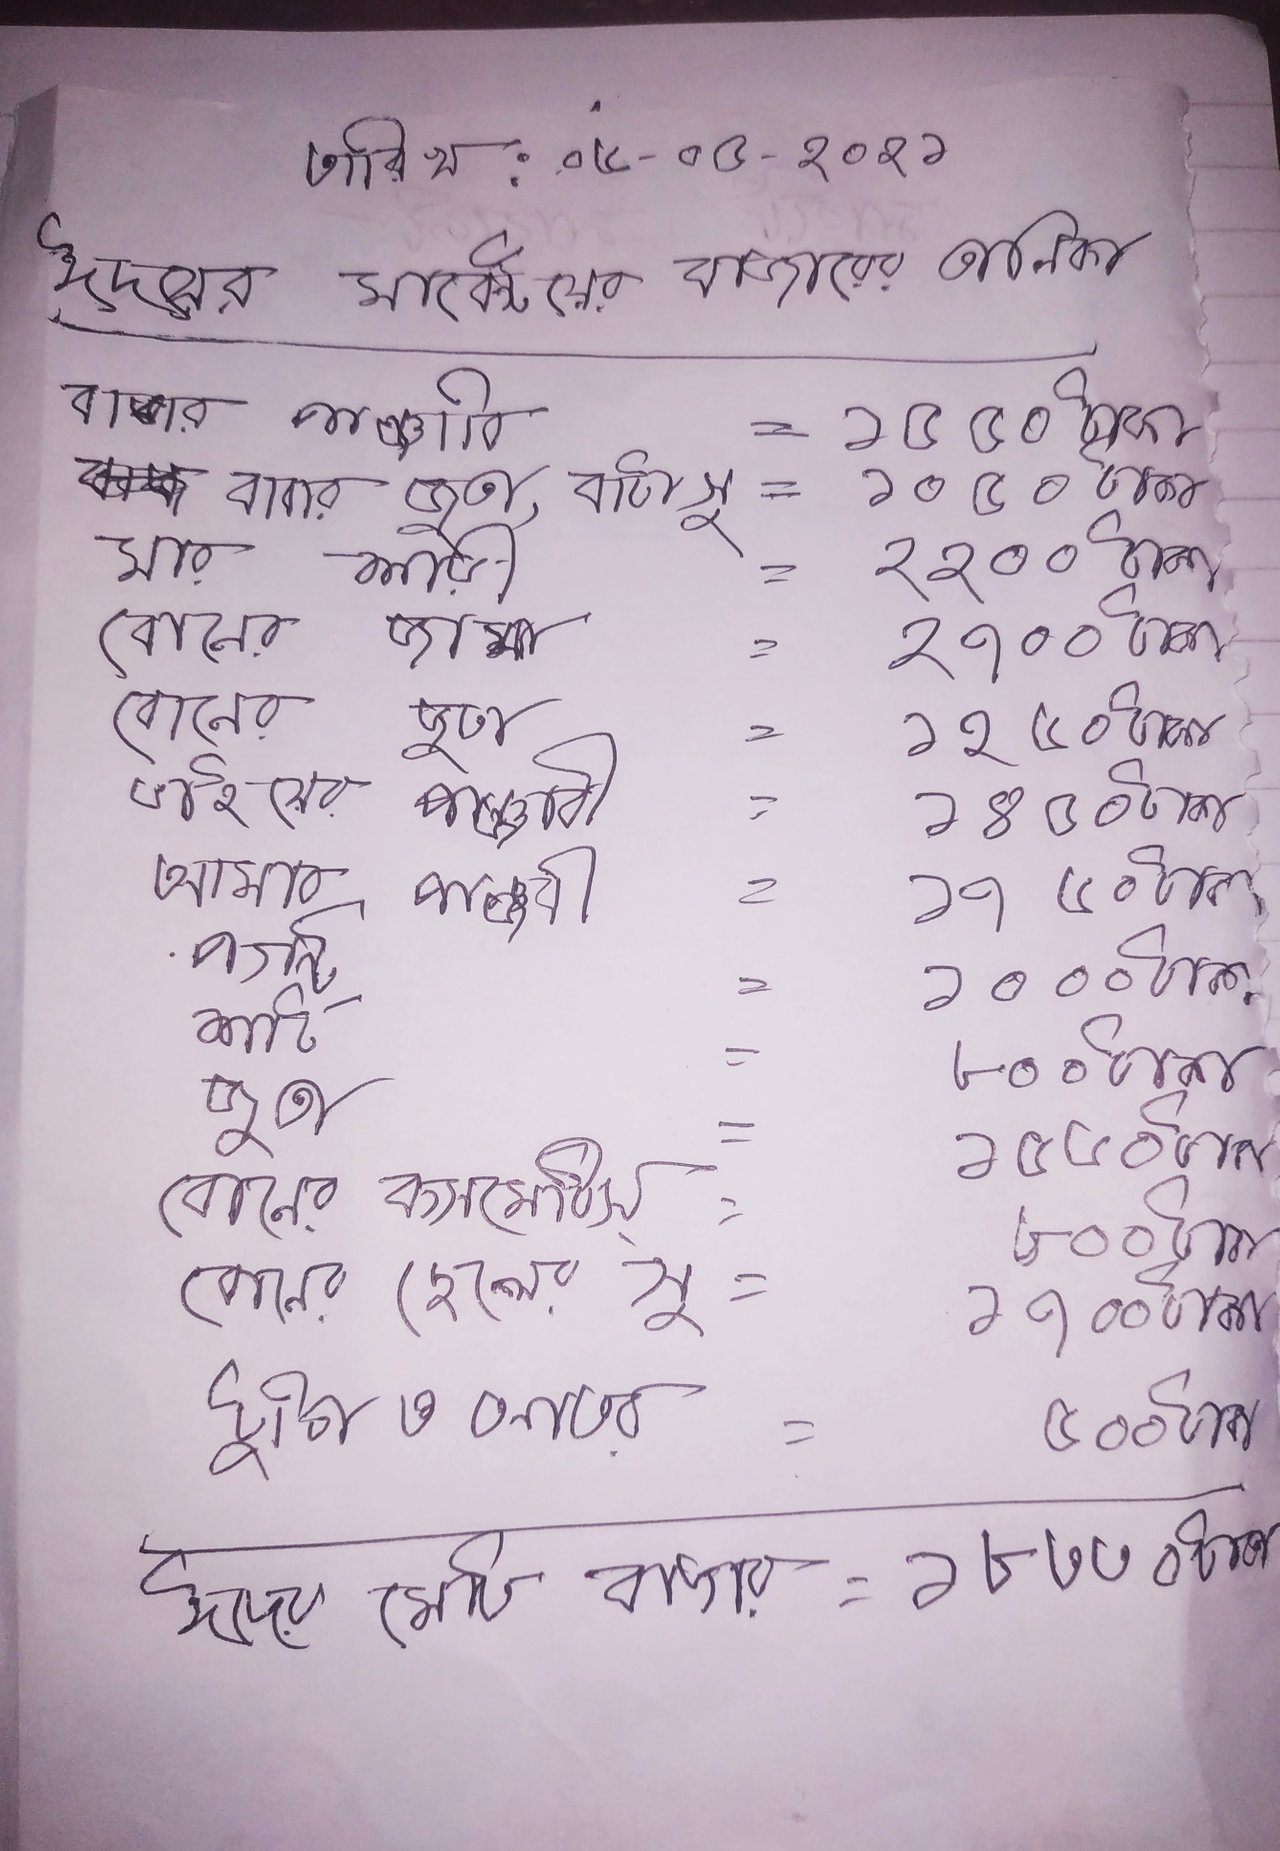 তারিখ : ০৫-০৫-২০২১
ঈদের মার্কেটের বাজারের তালিকা
বাবার পাঞ্জাবি = ১৫৫০ টাকা
বাবার জুতা, বাটা সু = ১০৫০ টাকা
মার শাড়ী = ২২০০ টাকা
বোনের জামা = ২৭০০ টাকা
বোনের জুতা = ১২৫০ টাকা
ভাইয়ের পাঞ্জাবী = ১৪৫০ টাকা
আমার পাঞ্জাবী = ১৭৫০ টাকা
প্যান্ট = ১০০০ টাকা
শার্ট = ৮০০ টাকা
জুতা = ১৫৫০ টাকা
বোনের কসমেটিস্ = ৮০০ টাকা
বোনের ছেলের সু = ১৭০০ টাকা
টুপি ও = ৫০০ টাকা
ঈদের মোট বাজার = টাকা